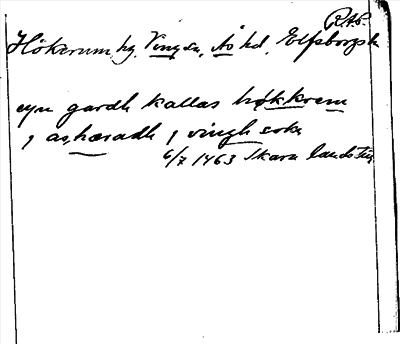 R.A.P.
Hökerum, hg. Vings sn, Ås hd, Elfsborgs l.
eyn gardh kallas høkkrem
j ashæradh j vingh sokn
6/7 1463 Skara landsting